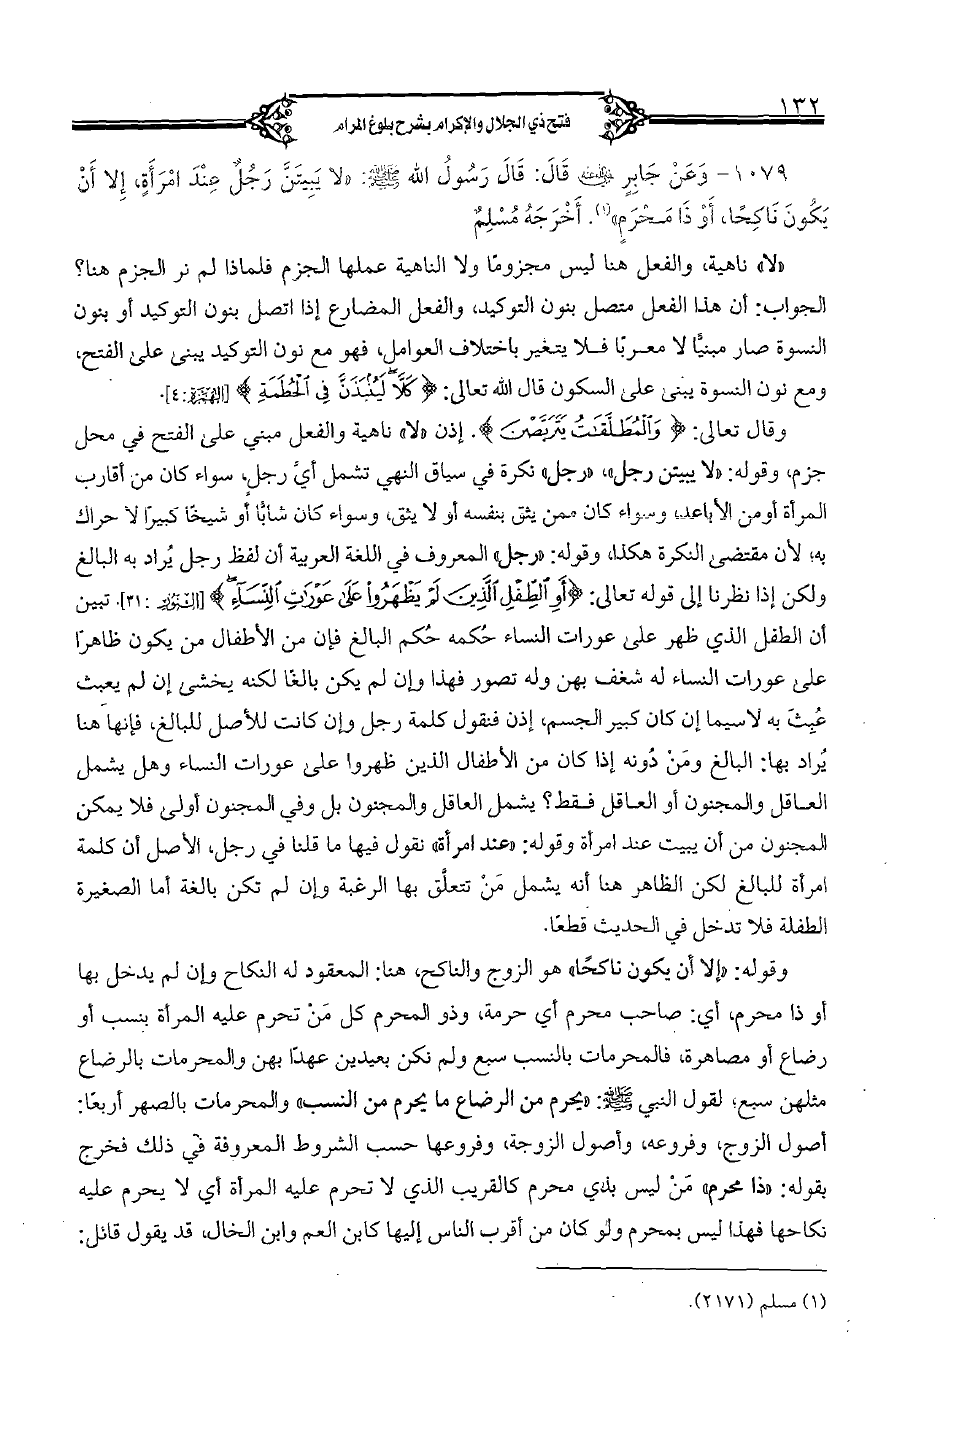 ١٣٢
فتح ذي الجلال والإكرام بشرح بلوغ المرام
١٠٧٩- وَعَنْ جَابِرٍ رضي الله عنه قَالَ: قَالَ رَسُولُ الله ﷺ: «لا يَبِيتَنَّ رَجُلٌ عِنْدَ امْرَأَةٍ، إِلا أَنْ
يَكُونَ نَاكِحًا، أَوْ ذَا مَحْرَمٍ»(١). أَخْرَجَهُ مُسْلِمٌ
«لا» ناهية، والفعل هنا ليس مجزومًا ولا الناهية عملها الجزم فلماذا لم نر الجزم هنا؟
الجواب: أن هذا الفعل متصل بنون التوكيد، والفعل المضارع إذا اتصل بنون التوكيد أو بنون
النسوة صار مبنيًّا لا معربًا فلا يتغير باختلاف العوامل، فهو مع نون التوكيد يبنى على الفتح،
ومع نون النسوة يبنى على السكون قال الله تعالى: ﴿ كَلَّا لَيُنْبَذَنَّ فِي الْحُطَمَةِ ﴾ [الهمزة:٤].
وقال تعالى: ﴿ وَالْمُطَلَّقَاتُ يَتَرَبَّصْنَ ﴾. إذن «لا» ناهية والفعل مبني على الفتح في محل
جزم، وقوله: «لا يبيتن رجل»، «رجل» نكرة في سياق النهي تشمل أيَّ رجل، سواء كان من أقارب
المرأة أومن الأباعد، وسواء كان ممن يثق بنفسه أو لا يثق، وسواء كان شابًّا أو شيخًا كبيرًا لا حراك
به؛ لأن مقتضى النكرة هكذا، وقوله: «رجل» المعروف في اللغة العربية أن لفظ رجل يُراد به البالغ
ولكن إذا نظرنا إلى قوله تعالى: ﴿أَوِ الطِّفْلِ الَّذِينَ لَمْ يَظْهَرُوا عَلَى عَوْرَاتِ النِّسَاءِ ﴾ [النور: ٣١]. تبين
أن الطفل الذي ظهر على عورات النساء حُكمه حُكم البالغ فإن من الأطفال من يكون ظاهرًا
على عورات النساء له شغف بهن وله تصور فهذا وإن لم يكن بالغًا لكنه يخشى إن لم يعبث
عُبِثَ به لاسيما إن كان كبير الجسم، إذن فنقول كلمة رجل وإن كانت للأصل للبالغ، فإنها هنا
يُراد بها: البالغ ومَنْ دُونه إذا كان من الأطفال الذين ظهروا على عورات النساء وهل يشمل
العاقل والمجنون أو العاقل فقط؟ يشمل العاقل والمجنون بل وفي المجنون أولى فلا يمكن
المجنون من أن يبيت عند امرأة وقوله: «عند امرأة» نقول فيها ما قلنا في رجل، الأصل أن كلمة
امرأة للبالغ لكن الظاهر هنا أنه يشمل مَنْ تتعلَّق بها الرغبة وإن لم تكن بالغة أما الصغيرة
الطفلة فلا تدخل في الحديث قطعًا.
وقوله: «إلا أن يكون ناكحًا» هو الزوج والناكح، هنا: المعقود له النكاح وإن لم يدخل بها
أو ذا محرم، أي: صاحب محرم أي حرمة، وذو المحرم كل مَنْ تحرم عليه المرأة بنسب أو
رضاع أو مصاهرة، فالمحرمات بالنسب سبع ولم نكن بعيدين عهدًا بهن والمحرمات بالرضاع
مثلهن سبع، لقول النبي ﷺ: «يحرم من الرضاع ما يحرم من النسب» والمحرمات بالصهر أربعًا:
أصول الزوج، وفروعه، وأصول الزوجة، وفروعها حسب الشروط المعروفة في ذلك فخرج
بقوله: «ذا محرم» مَنْ ليس بذي محرم كالقريب الذي لا تحرم عليه المرأة أي لا يحرم عليه
نكاحها فهذا ليس بمحرم ولو كان من أقرب الناس إليها كابن العم وابن الخال، قد يقول قائل:
(١) مسلم (٢١٧١).